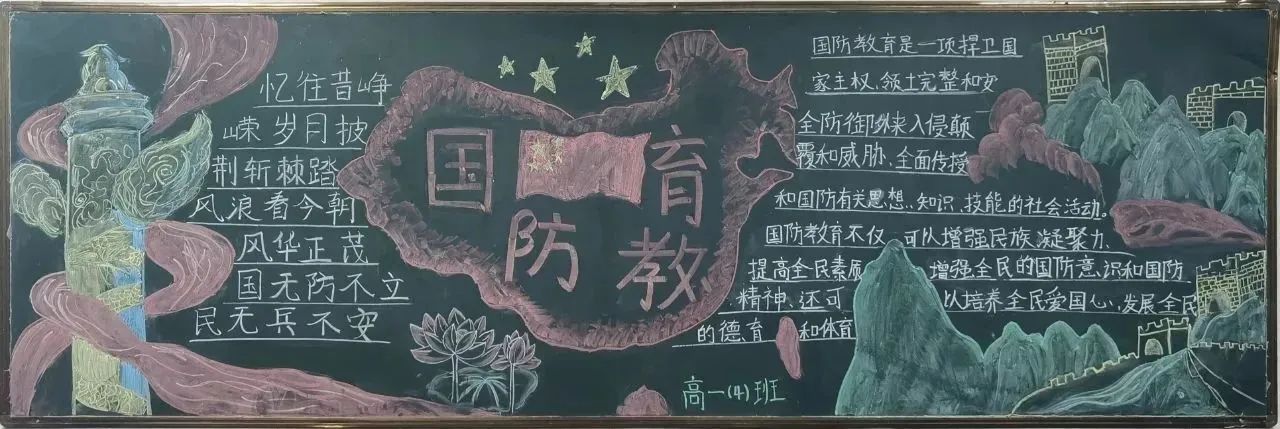 忆往昔峥
嵘岁月披
荆斩棘踏
风浪看今朝
风华正茂
国无防不立
民无兵不安
国防教育
国防教育是一项捍卫国
家主权、领土完整和安
全防御外来入侵颠
覆和威胁、全面传授
和国防有关思想、知识、技能的社会活动。
国防教育不仅 可以增强民族凝聚力、
提高全民素质 增强全民的国防意识和国防
精神、还可 以培养全民爱国心、发展全民
的德育 和体育
高一(4)班